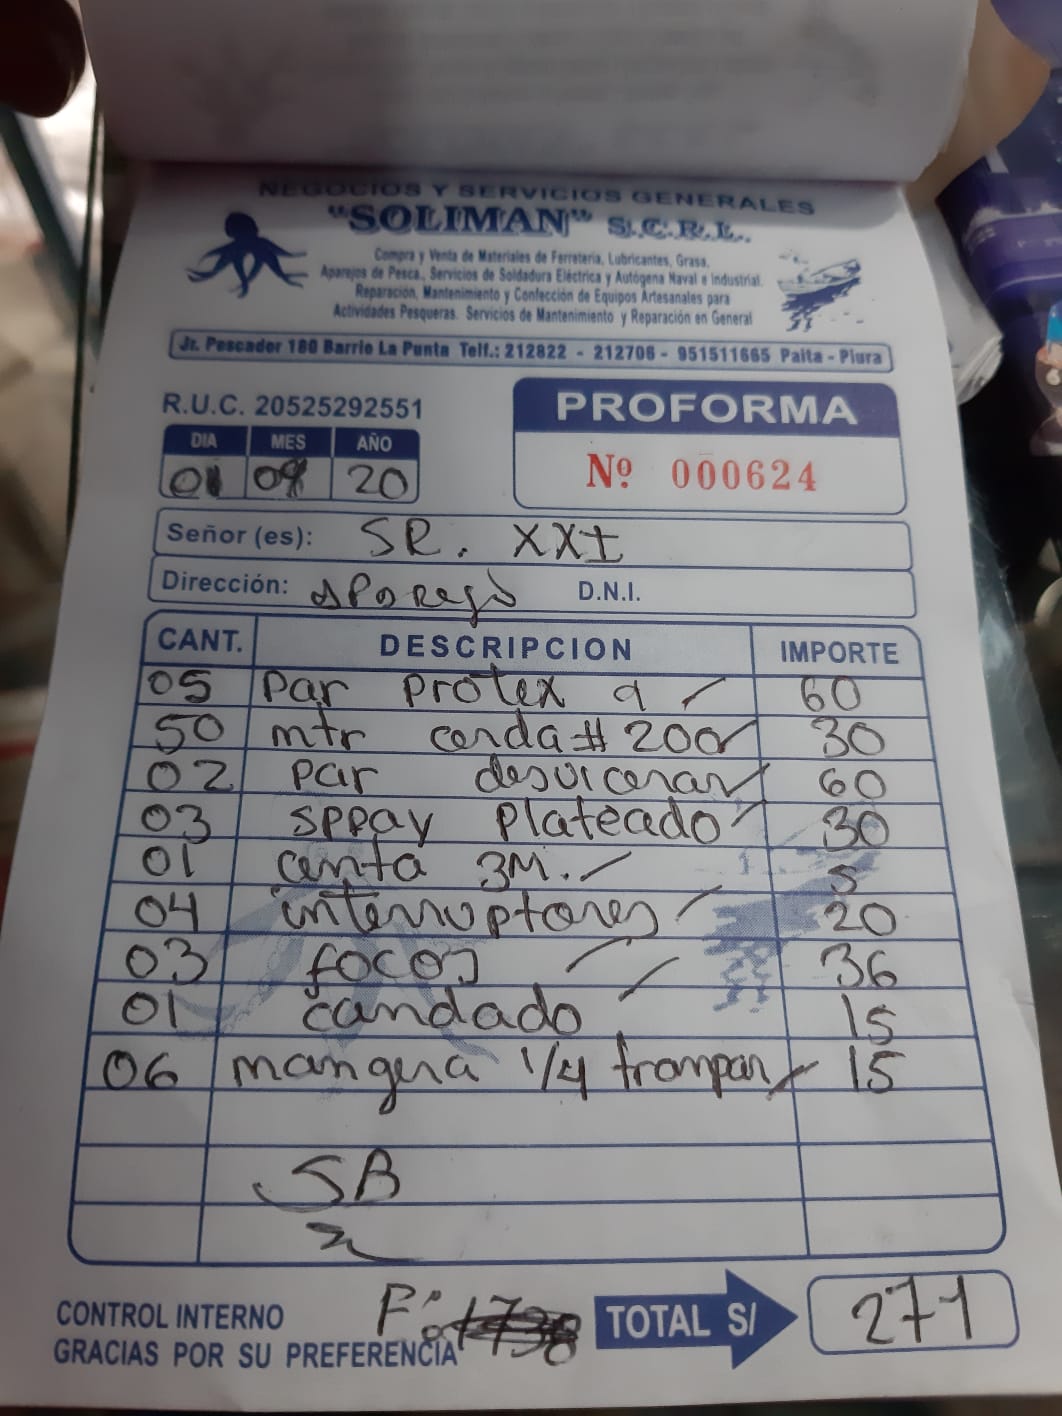 NEGOCIOS Y SERVICIOS GENERALES
"SOLIMAN" S.C.R.L.
Compra y Venta de Materiales de Ferreteria, Lubricantes, Grasa,
Aparejos de Pesca, Servicios de Soldadura Eléctrica y Autógena Naval e Industrial.
Reparación, Mantenimiento y Confección de Equipos Artesanales para
Actividades Pesqueras. Servicios de Mantenimiento y Reparación en General
Jr. Pescador 180 Barrio La Punta Telf.: 212822 - 212706 - 951511665 Paita - Piura
R.U.C. 20525292551
PROFORMA
DIA MES AÑO
01 09 20
Nº 000624
Señor (es): SR. XXI
Dirección: D.N.I.
CANT. DESCRIPCION IMPORTE
05 Par Protex 9 60
50 mtr #200 30
02 Par desvicerar 60
03 sppay Plateado 30
01 3M. 5
04 interruptores 20
03 focos 36
01 candado 15
06 mangera 1/4 trampar 15
SB
CONTROL INTERNO
GRACIAS POR SU PREFERENCIA
TOTAL S/ 271